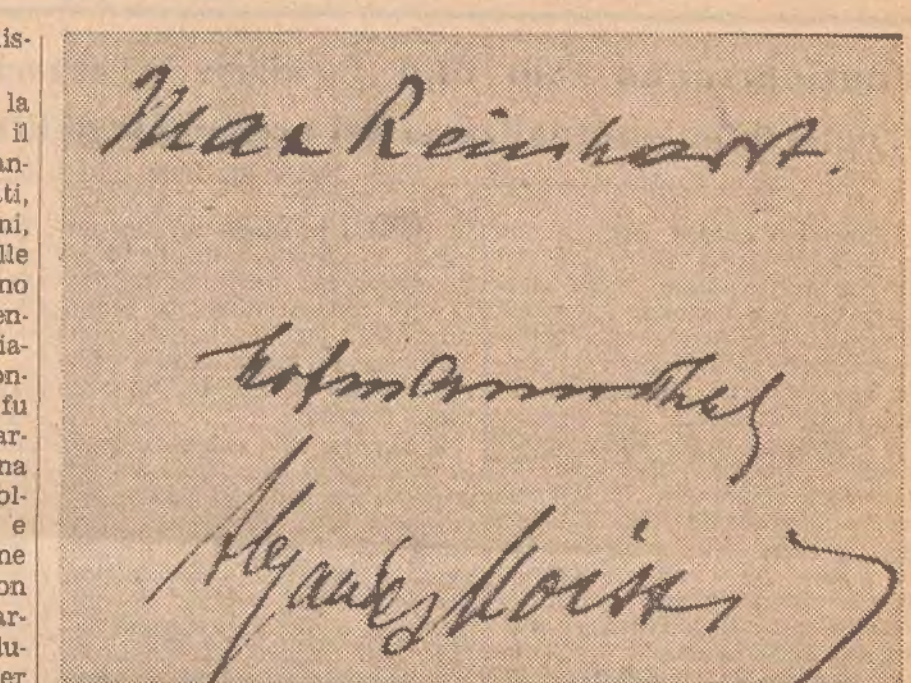 is-
la
il
an-
ti,
ni,
lle
no
en-
ia-
on-
fu
ar-
na
ol-
e
ne
on
ar-
du-
er
Max Reinhardt.
Hofmannsthal
Alexander Moissi